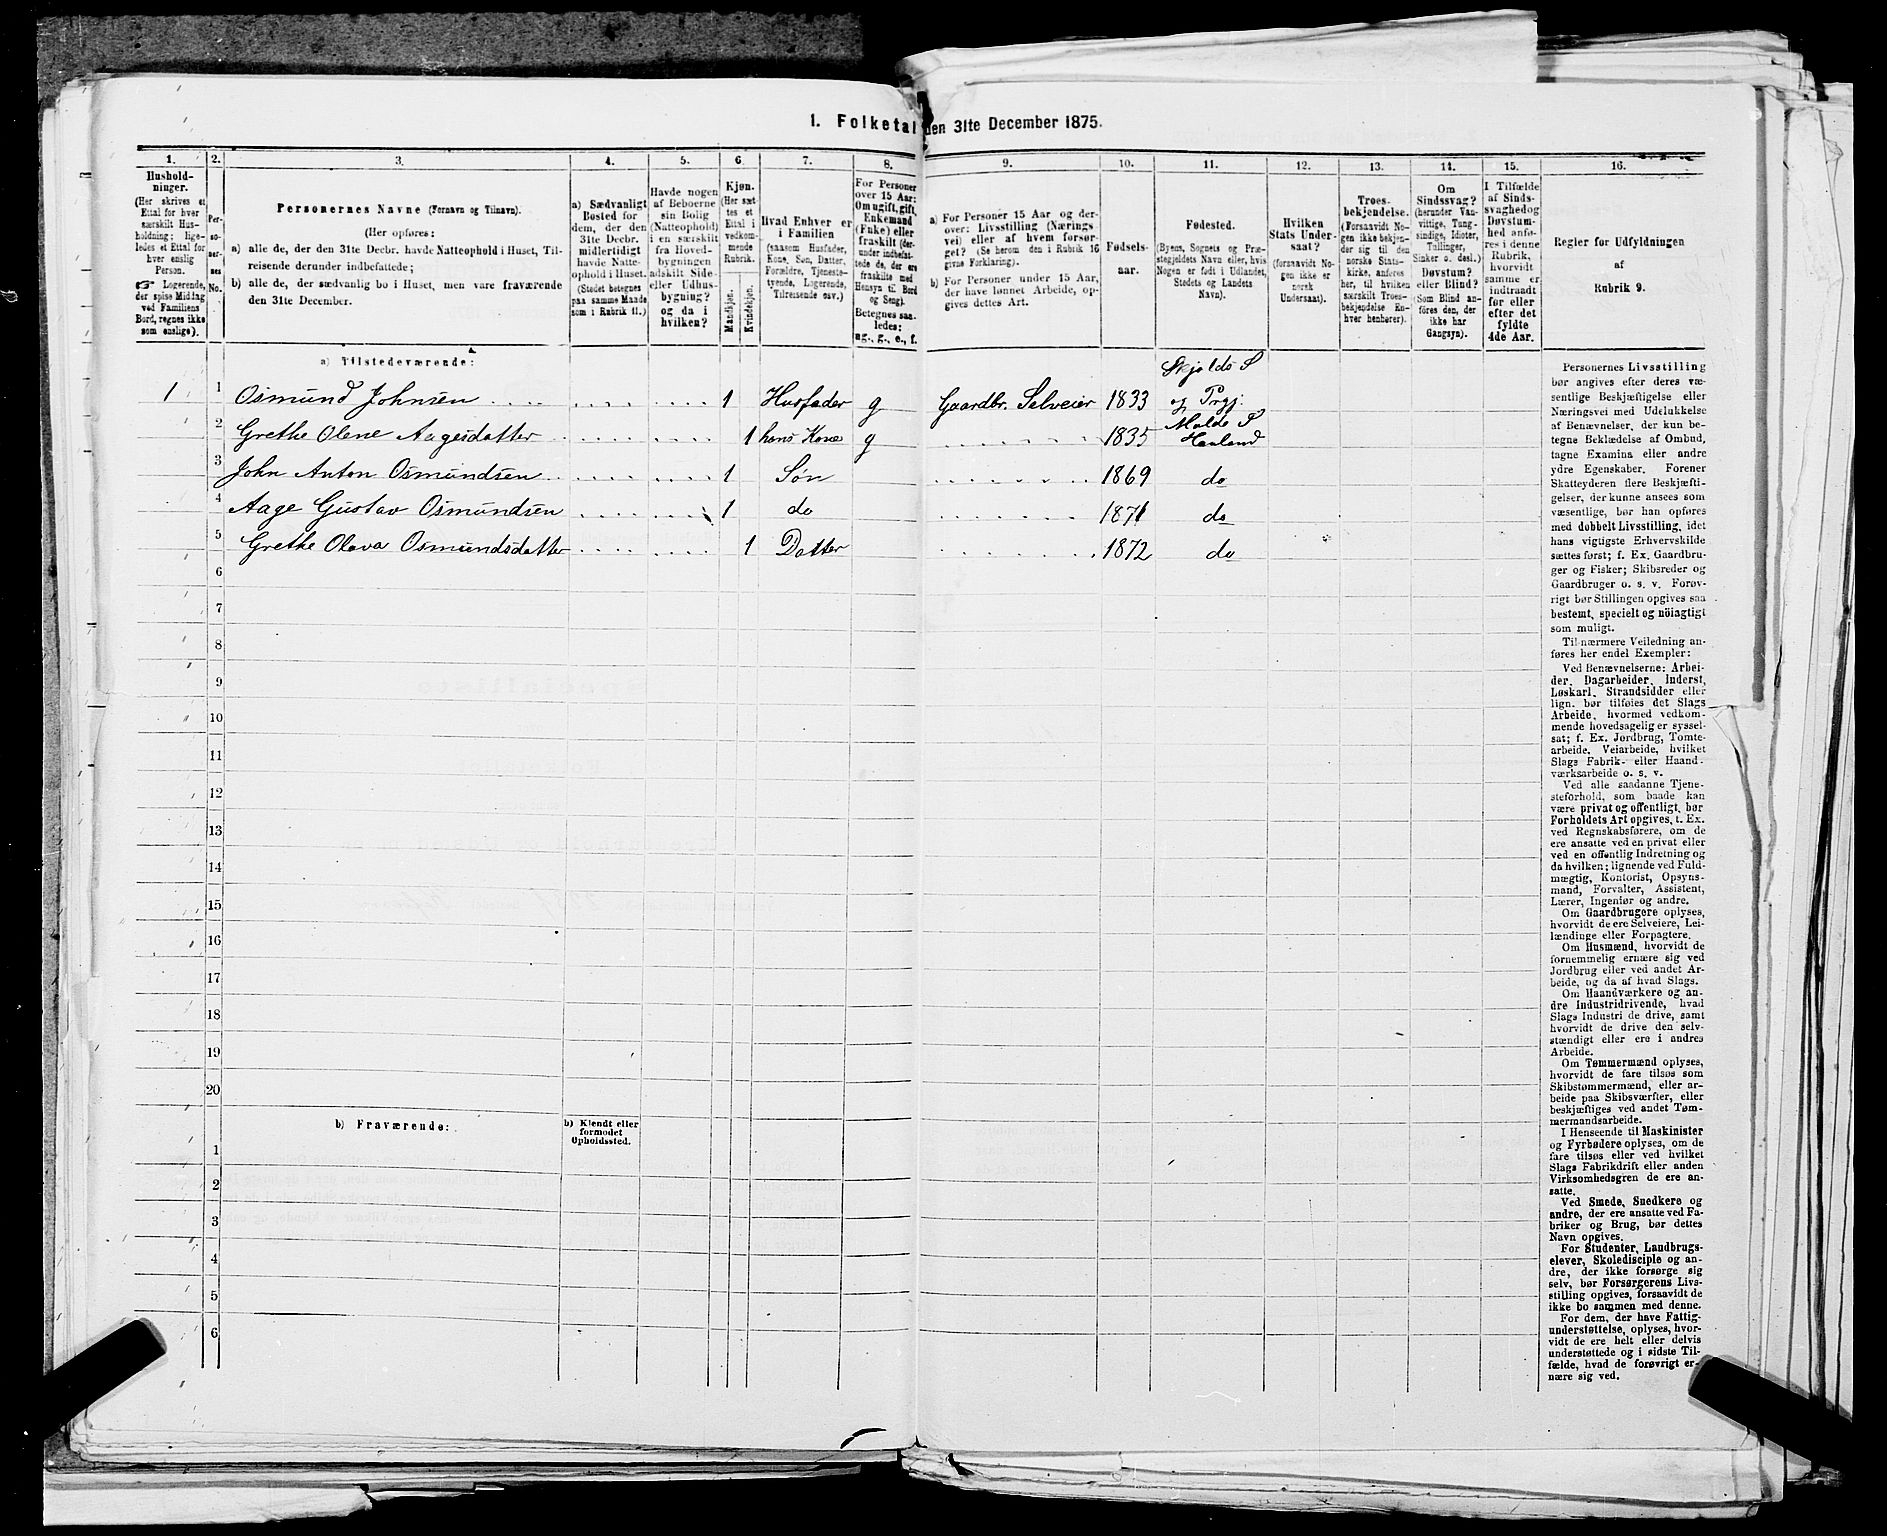 1. Folketal den 31te December 1875.
1.
2.
3.
4.
5.
6.
7.
8.
9.
10.
11.
12.
13.
14.
15.
16.
Hushold-
ninger.
(Her skrives et
Ettal for hver
særskilt Hus-
holdning; lige-
ledes et Ettal for
hver enslig
Person.
Logerende,
der spise Middag
ved Familiens
Bord, regnes ikke
som enslige).
Per-
so-
ner-
nes
No.
Personernes Navne (Fornavn og Tilnavn).
(Her opføres:
a) alle de, der den 31te Decbr. havde Natteophold i Huset, Til-
reisende derunder indbefattede;
b) alle de, der sædvanlig bo i Huset, men vare fraværende
den 31te December.
a) Sædvanligt
Bosted for
dem, der den
31te Decbr.
midlertidigt
havde Natte-
ophold i Huset.
(Stedet betegnes
paa samme Maade
som i Rubrik 11.)
Havde nogen
af Beboerne
sin Bolig
(Natteophold)
i en særskilt
fra Hoved-
bygningen
adskilt Side-
eller Udhus-
bygning?
og da i
hvilken?
Kjøn.
(Her sæt-
tes et
Ettal i
vedkom-
mende
Rubrik.
Mandkjøn.
Kvindekjøn.
Hvad Enhver er
i Familien
(saasom Husfader,
Kone, Søn, Datter,
Forældre, Tjeneste-
tyende, Logerende,
Tilreisende osv.)
For Personer
over 15 Aar:
Om ugift, gift,
Enkemand
(Enke) eller
fraskilt (der-
under indbefat-
tede de, der ere
fraskilte med
Hensyn til Bord
og Seng).
Betegnes saa-
ledes:
ug., g., e., f.
a) For Personer 15 Aar og der-
over: Livsstilling (Nærings-
vei) eller af hvem forsør-
get? (Se herom den i Rubrik 16
givne Forklaring).
b) For Personer under 15 Aar,
der have lønnet Arbeide, op-
gives dettes Art.
Fødsels-
aar.
Fødested.
(Byens, Sognets og Præ-
stegjeldets Navn eller, hvis
Nogen er født i Udlandet,
Stedets og Landets
Navn).
Hvilken
Stats Under-
saat?
(forsaavidt No-
gen ikke er
norsk
Undersaat).
Troes-
bekjendelse.
(Forsaavidt No-
gen ikke bekjen-
der sig til den
norske Stats-
kirke, anføres
her, til hvilken
særskilt Troes-
bekjendelse En-
hver henhører).
Om
Sindssvag?
(herunder Van-
vittige, Tung-
sindige, Idioter,
Tullinger,
Sinker o. desl.)
Døvstum?
eller Blind?
(Som Blind an-
føres den, der
ikke har
Gangsyn).
I Tilfælde
af Sinds-
svaghed og
Døvstum-
hed anfø-
res i denne
Rubrik,
hvorvidt
samme er
indtraadt
før eller
efter det
fyldte
4de Aar.
Regler for Udfyldningen
af
Rubrik 9.
a) Tilstedeværende:
Skjolds S
1 1 Osmund Johnsen 1 Husfader g Gaardbr. Selveier 1833 og Prgj:
2 Grethe Olene Aagesdatter 1 hans Kone g 1835
3 John Anton Osmundsen 1 Søn 1869 do
4 Aage Gustav Osmundsen 1 do 1871 do
5 Grethe Olava Osmundsdatter 1 Datter 1872 do
6
7
8
9
10
11
12
13
14
15
16
17
18
19
20
b) Fraværende:
b) Kjendt eller
formodet
Opholdssted.
1
2
3
4
5
6
Personernes Livsstilling
bør angives efter deres væ-
sentlige Beskjæftigelse eller
Næringsvei med Udelukkelse
af Benævnelser, der kun be-
tegne Beklædelse af Ombud,
tagne Examina eller andre
ydre Egenskaber. Forener
Skatteyderen flere Beskjæfti-
gelser, der kunne ansees som
væsentlige, bør han opføres
med dobbelt Livsstilling, idet
hans vigtigste Erhvervskilde
sættes først; f. Ex. Gaardbru-
ger og Fisker; Skibsreder og
Gaardbruger o. s. v. Forøv-
rigt bør Stillingen opgives saa
bestemt, specielt og nöiagtigt
som muligt.
Til nærmere Veiledning an-
føres her endel Exempler:
Ved Benævnelserne: Arbei-
der, Dagarbeider, Inderst,
Løskarl, Strandsidder eller
lign. bør tilføies det Slags
Arbeide, hvormed vedkom-
mende hovedsagelig er syssel-
sat; f. Ex. Jordbrug, Tomte-
arbeide, Veiarbeide, hvilket
Slags Fabrik- eller Haand-
værksarbeide o. s. v.
Ved alle saadanne Tjene-
steforhold, som baade kan
være privat og offentligt, bør
Forholdets Art opgives, t. Ex.
ved Regnskabsførere, om de
ere ansatte ved en privat eller
ved en offentlig Indretning og
da hvilken; lignende ved Fuld-
mægtig, Kontorist, Opsyns-
mand, Forvalter, Assistent,
Lærer, Ingeniør og andre.
Om Gaardbrugere oplyses,
hvorvidt de ere Selveiere, Lei-
lændinge eller Forpagtere.
Om Husmænd, hvorvidt de
fornemmelig ernære sig ved
Jordbrug eller ved andet Ar-
beide, og da af hvad Slags.
Om Haandværkere og an-
dre Industridrivende, hvad
Slags Industri de drive, samt
hvorvidt de drive den selv-
stændigt eller ere i andres
Arbeide.
Om Tømmermænd oplyses,
hvorvidt de fare tilsøs som
Skibstømmermænd, eller ar-
beide paa Skibsværfter, eller
beskjæftiges ved andet Tøm-
mermandsarbeide.
I Henseende til Maskinister
og Fyrbødere oplyses, om de
fare tilsøs eller ved hvilket
Slags Fabrikdrift eller anden
Virksomhedsgren de ere an-
satte.
Ved Smede, Snedkere og
andre, der ere ansatte ved Fa-
briker og Brug, bør dettes
Navn opgives.
For Studenter, Landbrugs-
elever, Skoledisciple og an-
dre, der ikke forsørge sig
selv, bør Forsørgerens Livs-
stilling opgives, forsaavidt de
ikke bo sammen med denne.
For dem, der have Fattig-
understøttelse, oplyses, hvor-
vidt de ere helt eller delvis
understøttede og i sidste Til-
fælde, hvad de forøvrigt er-
nære sig ved.